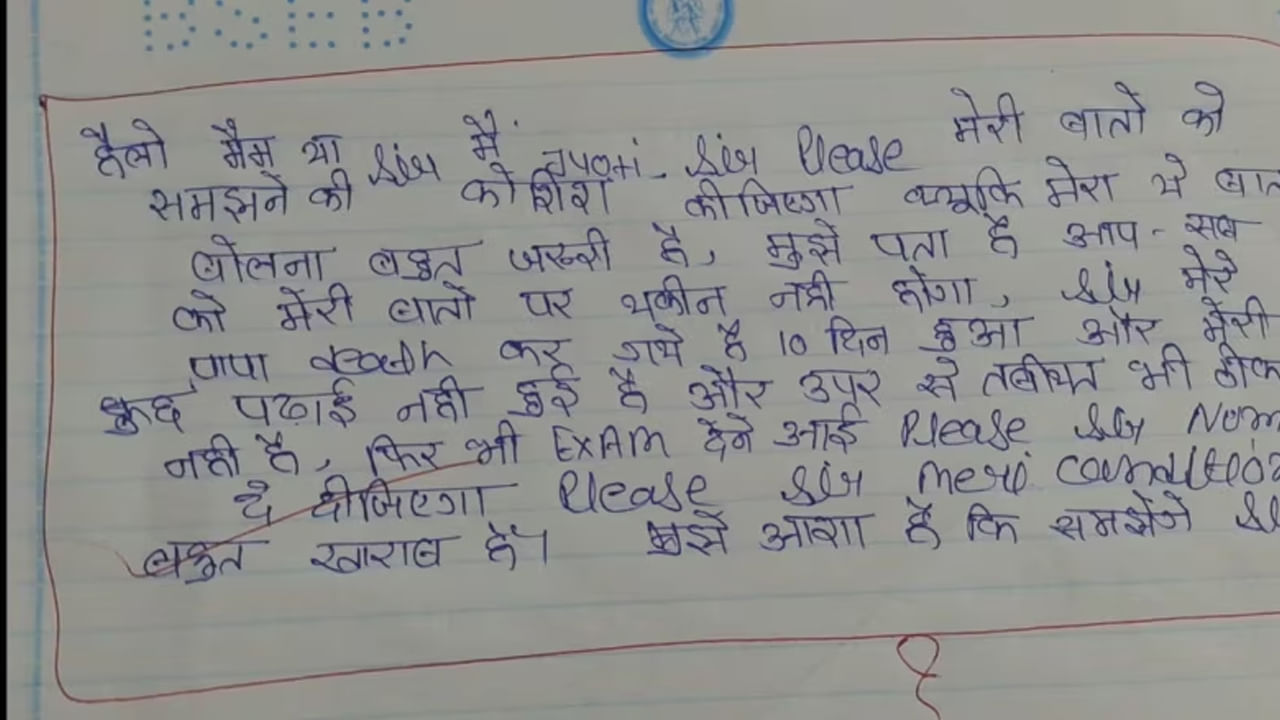 BSEB
हैलो मैम या Sir मैं Jyoti. Sir Please मेरी बातो को
समझने की कोशिश कीजिएगा क्यूकि मेरा ये बात
बोलना बहुत जरूरी है, मुझे पता है आप-सब
को मेरी बातो पर यकीन नही होगा, Sir मेरे
पापा death कर गये है 10 दिन हुआ और मेरी
कुछ पढाई नही हुई है और उपर से तबीयत भी ठीक
नही है, फिर भी EXAM देने आई Please Sir
दे दीजिएगा Please Sir meri
बहुत खाराब है। मुझे आशा है कि समझेंगे